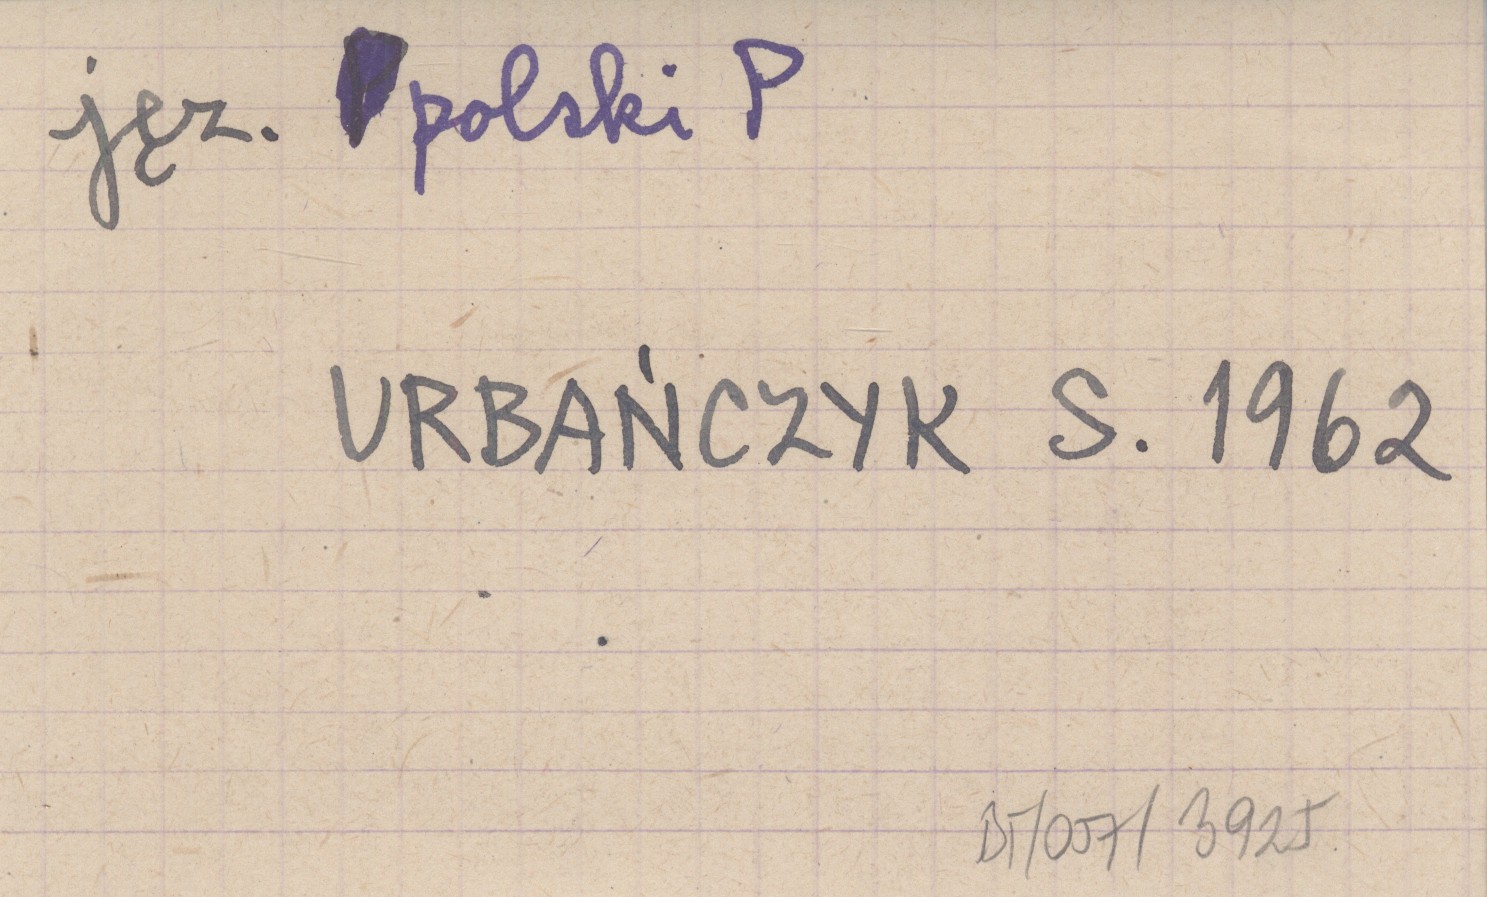 jęz. polski P
URBAŃCZYK S. 1962
BT/057/3925